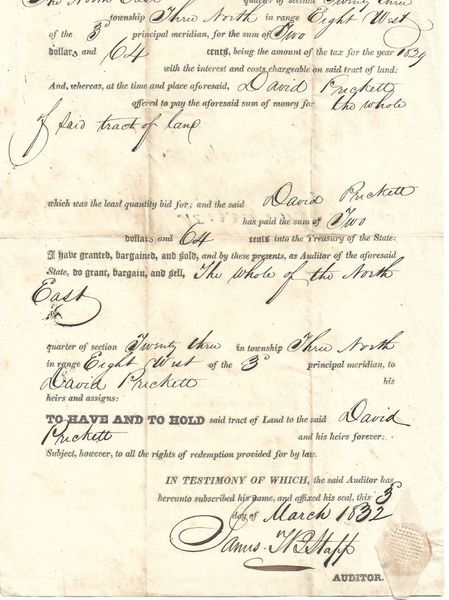 North East quarter of section Twenty three
township Three North in range Eight West
of the 3d principal meridian, for the sum of Two
dollars and 64 cents, being the amount of the tax for the year 1829
with the interest and costs chargeable on said tract of land:
And, whereas, at the time and place aforesaid, David Prickett
offered to pay the aforesaid sum of money for the whole
of said tract of land
which was the least quantity bid for; and the said David Prickett
has paid the sum of Two
dollars and 64 cents into the Treasury of the State:
I have granted, bargained, and sold, and by these presents, as Auditor of the aforesaid
State, do grant, bargain, and sell, The whole of the North
East
quarter of section Twenty three in township Three North
in range Eight West of the 3d principal meridian, to
David Prickett his
heirs and assigns:
TO HAVE AND TO HOLD said tract of Land to the said David
Prickett and his heirs forever:
Subject, however, to all the rights of redemption provided for by law.
IN TESTIMONY OF WHICH, the said Auditor has
hereunto subscribed his name, and affixed his seal, this 3
day of March 1832
James T B Stapp
AUDITOR.